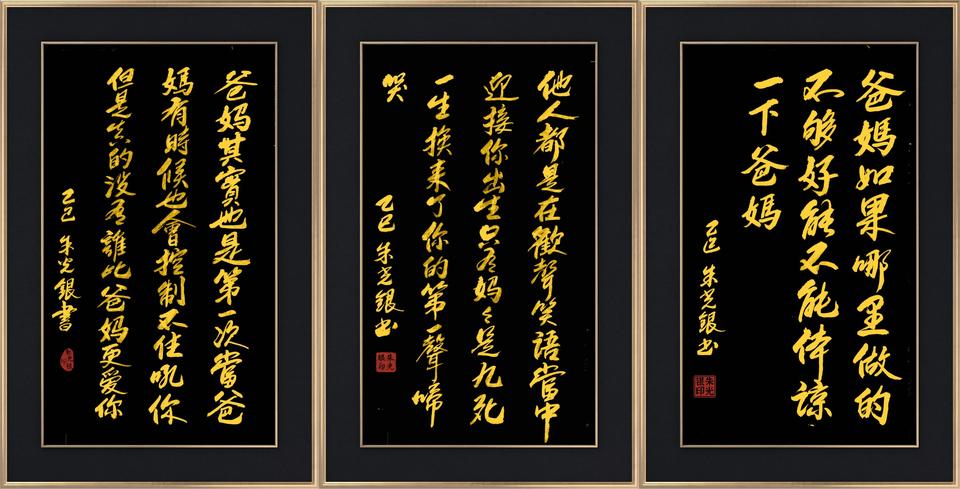 爸媽其實也是第一次當爸
媽有時候也會控制不住吼你
但是真的没有誰比爸媽更愛你
乙巳 朱光銀書
他人都是在歡聲笑語當中
迎接你出生只有媽々是九死
一生换来了你的第一聲啼
哭
乙巳 朱光銀书
朱光銀印
爸媽如果哪里做的
不够好能不能体諒
一下爸媽
乙巳 朱光銀书
朱光銀印